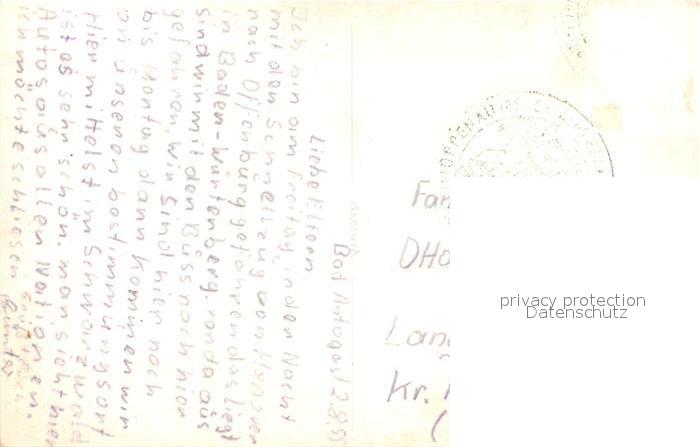 Bad Antogast 2.8.55
Liebe Eltern
Ich bin am Freitag in der Nacht
mit den Schnellzug von Hannover
nach Offenburg gefahren das liegt
in Baden-Würtenberg. von da aus
sind wir mit den Büss nach hier
gefahren. wir sind hier noch
bis Montag dann kommen wir
an unseren bestimmungsort
Hier mittelst im Schwarzwald
ist es sehr schön. man sieht hier
Autos aus allen Nationen.
Ich möchte schliesen
Günter
Fam
Land
Kr.
OPPENAU
privacy protection
Datenschutz